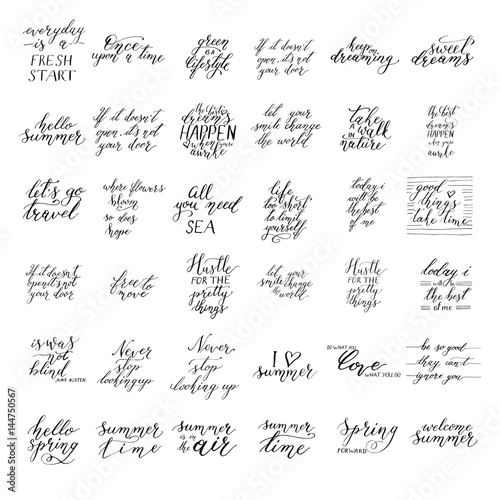 everyday
is a
FRESH
START
Once
upon a time
green
is a
lifestyle
If it doesn't
open, it's not
your door
keep
on
dreaming
sweet
dreams
hello
summer
If it doesn't
open, it's not
your door
the best
dreams
HAPPEN
when you're
awake
let your
smile change
the world
take
a walk
in
nature
the best
dreams
HAPPEN
when you're
awake
let's go
travel
where flowers
bloom
so does
hope
all
you need
SEA
life
is
too short
to limit
yourself
today i
will be
the best
of me
good
things
take time
If it doesn't
open it's not
your door
free to
move
Hustle
FOR THE
pretty
things
let your
smile change
the world
Hustle
FOR THE
pretty
things
today i
will be
the best
of me
is was
not
blind
JANE AUSTEN
Never
stop
looking up
Never
stop
looking up
I
summer
DO WHAT YOU
love
WHAT YOU DO
be so good
they can't
ignore you
hello
spring
summer
time
summer
is in
the air
summer
time
Spring
FORWARD
welcome
summer
Adobe Stock | #144750567